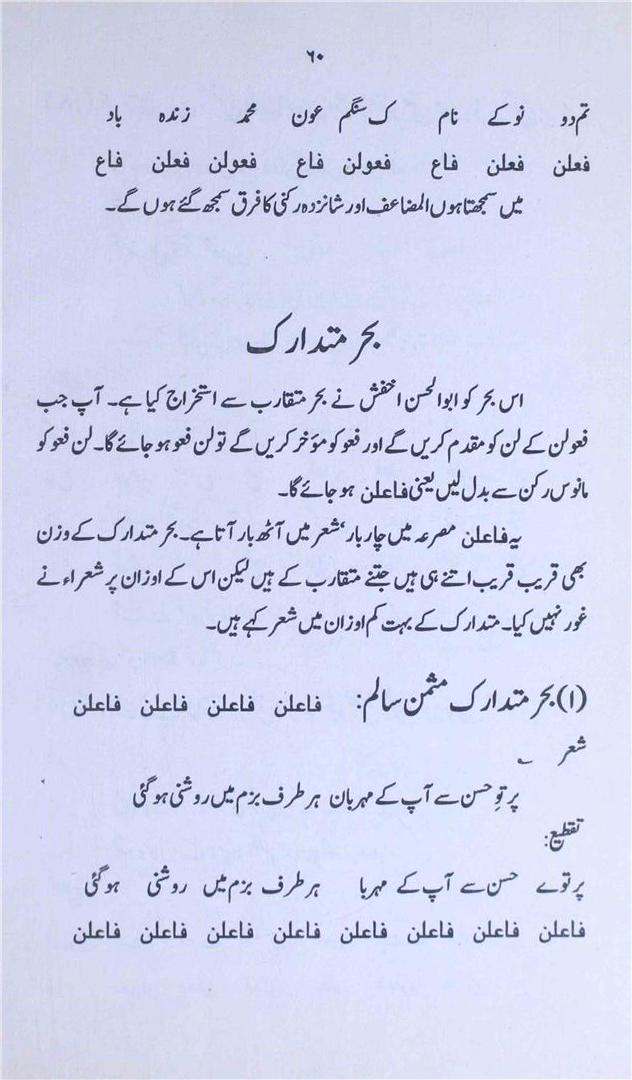 ۶۰
تم دو نو کے نام ک سنگم عون محمد زندہ باد
فعلن فعلن فاع فعولن فاع فعولن فعلن فاع
میں سمجھتا ہوں المضاعف اور شانزدہ رکنی کا فرق سمجھ گئے ہوں گے۔
بحر متدارک
اس بحر کو ابوالحسن اخفش نے بحر متقارب سے استخراج کیا ہے۔ آپ جب
فعولن کے لن کو مقدم کریں گے اور فعو کو مؤخر کریں گے تو لن فعو ہو جائے گا۔ لن فعو کو
مانوس رکن سے بدل لیں یعنی فاعلن ہو جائے گا۔
یہ فاعلن مصرعہ میں چار بار، شعر میں آٹھ بار آتا ہے۔ بحر متدارک کے وزن
بھی قریب قریب اتنے ہی ہیں جتنے متقارب کے ہیں لیکن اس کے اوزان پر شعراء نے
غور نہیں کیا۔ متدارک کے بہت کم اوزان میں شعر کہے ہیں۔
(۱) بحر متدارک مثمن سالم: فاعلن فاعلن فاعلن فاعلن
شعر ؂
پرتوِ حسن سے آپ کے مہربان ہر طرف بزم میں روشنی ہو گئی
تقطیع:
پرتوے حسن سے آپ کے مہربا ہر طرف بزم میں روشنی ہو گئی
فاعلن فاعلن فاعلن فاعلن فاعلن فاعلن فاعلن فاعلن